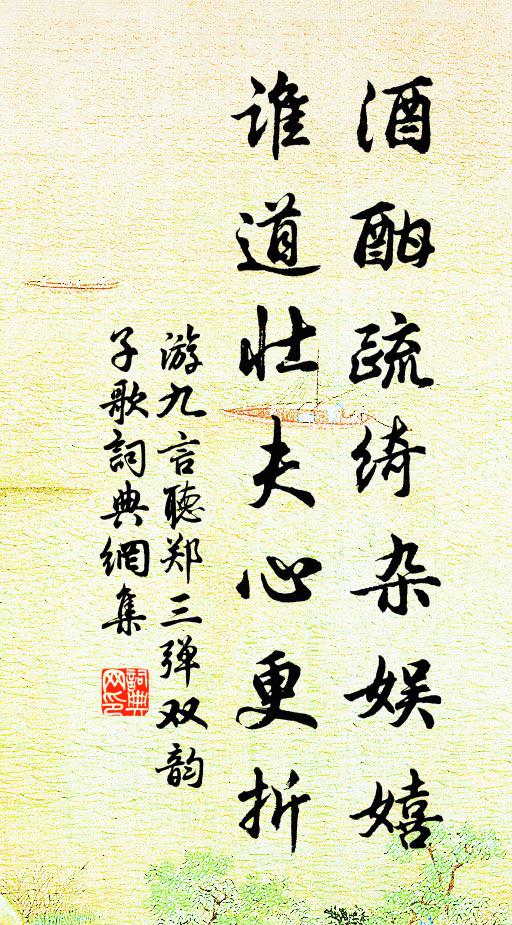 酒酣疏绮杂娱嬉
谁道壮夫心更折
游九言聴郑三弹双韵
子歌詞典網集
詞典网印